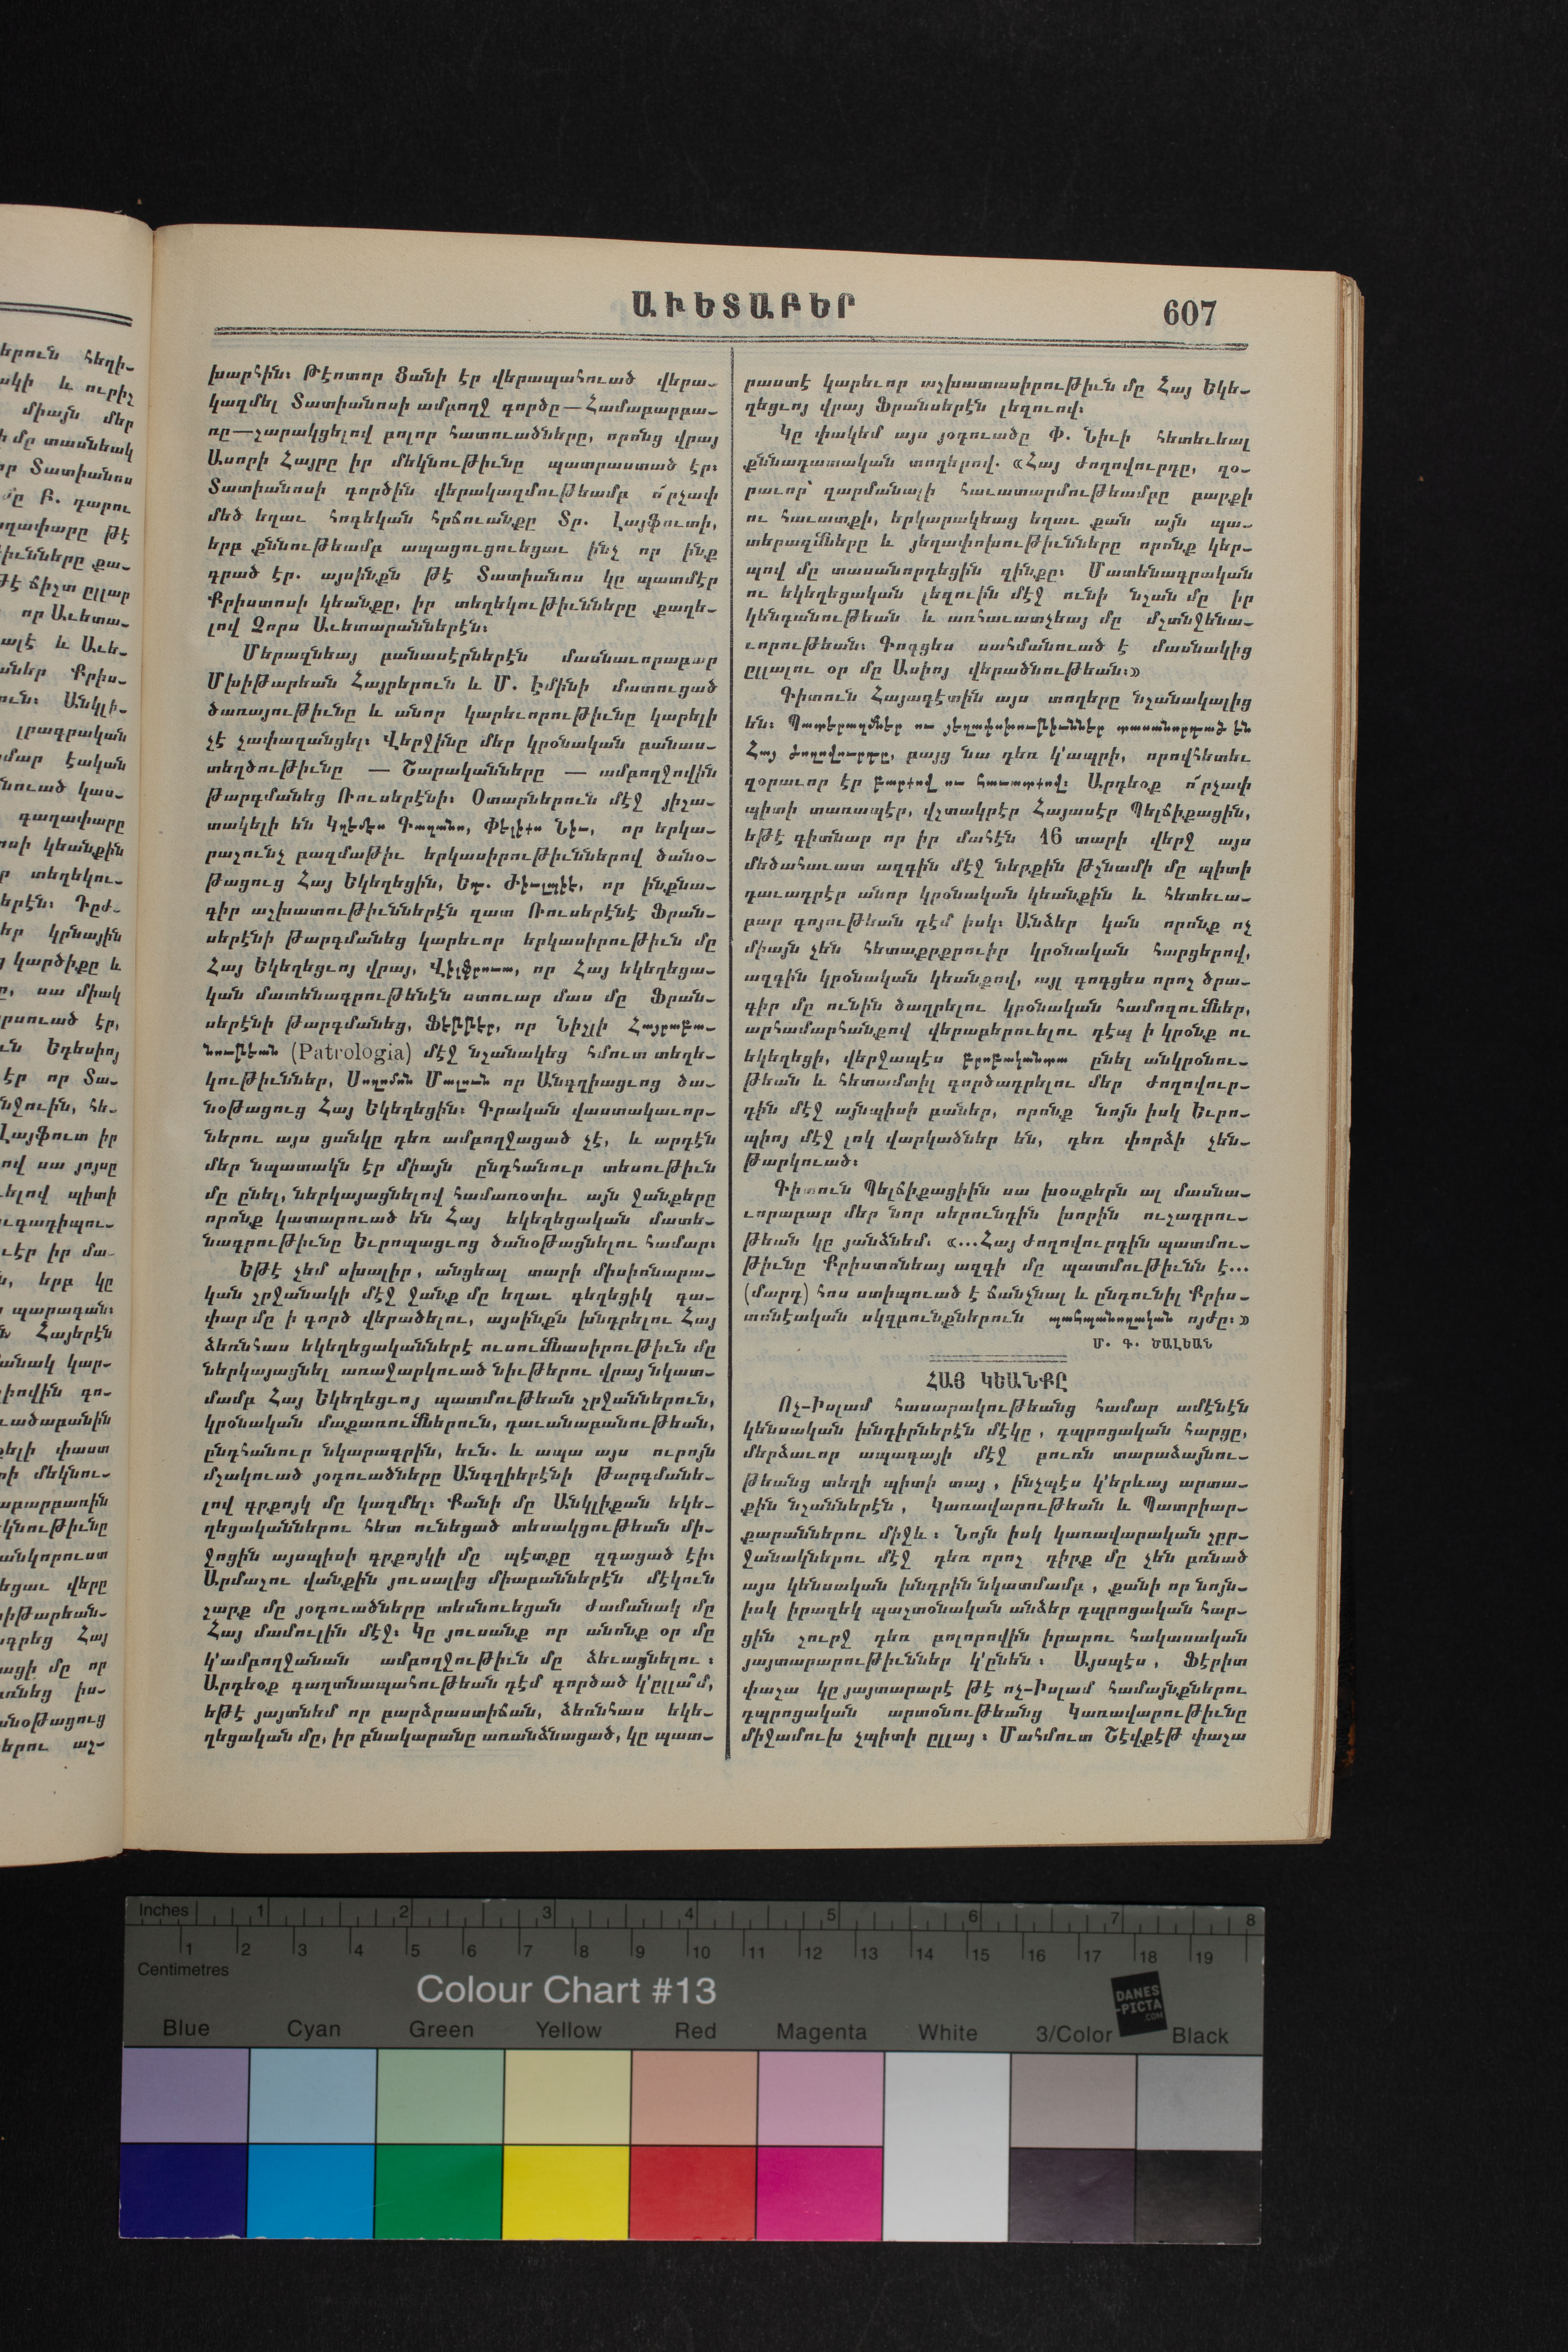 ԱՒԵՏԱԲԵՐ
607
խարհին։ Թէոտոր Ցանի էր վերապահուած վերա-
կազմել Տատիանոսի ամբողջ գործը — Համաբարբա-
ռը—շարակցելով բոլոր հատուածները, որոնց վրայ
Ասորի Հայրը իր մեկնութիւնը պատրաստած էր։
Տատիանոսի գործին վերակազմութեամբ ո՛րչափ
մեծ եղաւ հոգեկան հրճուանքը Տր. Լայֆուտի,
երբ քննութեամբ ապացուցուեցաւ ինչ որ ինք
գրած էր. այսինքն թէ Տատիանոս կը պատմէր
Քրիստոսի կեանքը, իր տեղեկութիւնները քաղե-
լով Չորս Աւետարաններէն։
Մերազնեայ բանասէրներէն մասնաւորաբար
Մխիթարեան Հայրերուն և Մ. Էմինի մատուցած
ծառայութիւնը և անոր կարեւորութիւնը կարելի
չէ չափազանցել։ Վերջինը մեր կրօնական բանաս-
տեղծութիւնը — Շարականները — ամբողջովին
թարգմանեց Ռուսերէնի։ Օտարներուն մէջ յիշա-
տակելի են Կղեմէս Գալանօ, Փէլիքս Նիւ, որ երկա-
րաշունչ բազմաթիւ երկասիրութիւններով ծանօ-
թացուց Հայ Եկեղեցին, Եդ. Ժիւլպիէ, որ ինքնա-
գիր աշխատութիւններէն զատ Ռուսերէնէ Ֆրան-
սերէնի թարգմանեց կարեւոր երկասիրութիւն մը
Հայ Եկեղեցւոյ վրայ, Վիլֆրուա, որ Հայ եկեղեցա-
կան մատենագրութենէն ստուար մաս մը Ֆրան-
սերէնի թարգմանեց, Ֆեթթեր, որ Նիշլի Հայրաբա-
նութեան (Patrologia) մէջ նշանակեց հմուտ տեղե-
կութիւններ, Սողոմոն Մալան որ Անգղիացւոց ծա-
նօթացուց Հայ Եկեղեցին։ Գրական վաստակաւոր-
ներու այս ցանկը դեռ ամբողջացած չէ, և արդէն
մեր նպատակն էր միայն ընդհանուր տեսութիւն
մը ընել, ներկայացնելով համառօտիւ այն ջանքերը
որոնք կատարուած են Հայ եկեղեցական մատե-
նագրութիւնը Եւրոպացւոց ծանօթացնելու համար։
Եթէ չեմ սխալիր, անցեալ տարի միսիոնարա-
կան շրջանակի մէջ ջանք մը եղաւ գեղեցիկ գա-
փար մը ի գործ վերածելու, այսինքն խնդրելու Հայ
ձեռնհաս եկեղեցականներէ ուսումնասիրութիւն մը
ներկայացնել առաջարկուած նիւթերու վրայ նկատ-
մամբ Հայ Եկեղեցւոյ պատմութեան շրջաններուն,
կրօնական մաքառումներուն, դաւանաբանութեան,
ընդհանուր նկարագրին, ևւն. և ապա այս ուրոյն
մշակուած յօդուածները Անգղիերէնի թարգմանե-
լով գրքոյկ մը կազմել։ Քանի մը Անկլիքան եկե-
ղեցականներու հետ ունեցած տեսակցութեան մի-
ջոցին այսպիսի գրքոյկի մը պէտքը զգացած էի։
Արմաշու վանքին յուսալից միաբաններէն մէկուն
շարք մը յօդուածները տեսնուեցան ժամանակ մը
Հայ մամուլին մէջ։ Կը յուսանք որ անոնք օր մը
կ՚ամբողջանան ամբողջութիւն մը ձեւացնելու ։
Արդեօք գաղտնապահութեան դէմ գործած կ՚ըլլա՞մ,
եթէ յայտնեմ որ բարձրաստիճան, ձեռնհաս եկե-
ղեցական մը, իր բնակարանը առանձնացած, կը պատ-
րաստէ կարեւոր աշխատասիրութիւն մը Հայ Եկե-
ղեցւոյ վրայ Ֆրանսերէն լեզուով։
Կը փակեմ այս յօդուածը Փ. Նիւի հետեւեալ
քննադատական տողերով. «Հայ ժողովուրդը, զօ-
րաւոր՝ զարմանալի հաւատարմութեամբը բարքի
ու հաւատքի, երկարակեաց եղաւ քան այն պա-
տերազմները և յեղափոխութիւնները որոնք կեր-
պով մը տասանորդեցին զինքը։ Մատենագրական
ու եկեղեցական լեզուին մէջ ունի նշան մը իր
կենդանութեան և առհաւատչեայ մը մշտնջենա-
ւորութեան։ Գուցես սահմանուած է մասնակից
ըլլալու օր մը Ասիոյ վերածնութեան։»
Գիտուն Հայագէտին այս տողերը նշանակալից
են։ Պատերազմներ ու յեղափոխութիւններ տասանորդած են
Հայ ժողովուրդը, բայց նա դեռ կ՚ապրի, որովհետեւ
զօրաւոր էր բարքով ու հաւատքով։ Արդեօք ո՛րչափ
պիտի տառապէր, վշտակրէր Հայասէր Պելճիքացին,
եթէ գիտնար որ իր մահէն 16 տարի վերջ այս
մեծահաւատ ազգին մէջ ներքին թշնամի մը պիտի
դաւադրէր անոր կրօնական կեանքին և հետեւա-
բար գոյութեան դէմ իսկ։ Անձեր կան որոնք ոչ
միայն չեն հետաքրքրուիր կրօնական հարցերով,
ազգին կրօնական կեանքով, այլ գոգցես որոշ ծրա-
գիր մը ունին ծաղրելու կրօնական համոզումներ,
արհամարհանքով վերաբերուելու դէպ ի կրօնք ու
եկեղեցի, վերջապէս բրոբականտա ընել անկրօնու-
թեան և հետամտիլ գործադրելու մեր ժողովուր-
դին մէջ այնպիսի բաներ, որոնք նոյն իսկ Եւրո-
պիոյ մէջ լոկ վարկածներ են, դեռ փորձի չեն-
թարկուած։
Գիտուն Պելճիքացիին սա խօսքերն ալ մասնա-
ւորաբար մեր նոր սերունդին խորին ուշադրու-
թեան կը յանձնեմ. «...Հայ ժողովուրդին պատմու-
թիւնը Քրիստոնեայ ազգի մը պատմութիւնն է...
(մարդ) հոս ստիպուած է ճանչնալ և ընդունիլ Քրիս-
տոնէական սկզբունքներուն պահպանողական ոյժը։»
Մ. Գ. ԾԱԼԵԱՆ
ՀԱՅ ԿԵԱՆՔԸ
Ոչ-Իսլամ հասարակութեանց համար ամէնէն
կենսական խնդիրներէն մէկը, դպրոցական հարցը,
մերձաւոր ապագայի մէջ բուռն տարաձայնու-
թեանց տեղի պիտի տայ, ինչպէս կ՚երևայ արտա-
քին նշաններէն, Կառավարութեան և Պատրիար-
քարաններու միջև։ Նոյն իսկ կառավարական շըր-
ջանակներու մէջ դեռ որոշ դիրք մը չեն բռնած
այս կենսական խնդրին նկատմամբ, քանի որ նոյն-
իսկ իրազեկ պաշտօնական անձեր դպրոցական հար-
ցին շուրջ դեռ բոլորովին իրարու հակասական
յայտարարութիւններ կ՚ընեն։ Այսպէս, Ֆէրիտ
փաշա կը յայտարարէ թէ ոչ-Իսլամ համայնքներու
դպրոցական արտօնութեանց Կառավարութիւնը
միջամուխ չպիտի ըլլայ։ Մահմուտ Շէվքէթ փաշա
Inches 1 2 3 4 5 6 7 8
1 2 3 4 5 6 7 8 9 10 11 12 13 14 15 16 17 18 19
Centimetres
Colour Chart #13
DANES
-PICTA
.COM
Blue Cyan Green Yellow Red Magenta White 3/Color Black